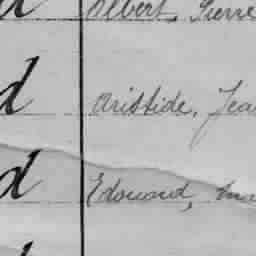 d Albert, Pierre
d Aristide, Jea
d Edouard, Ma